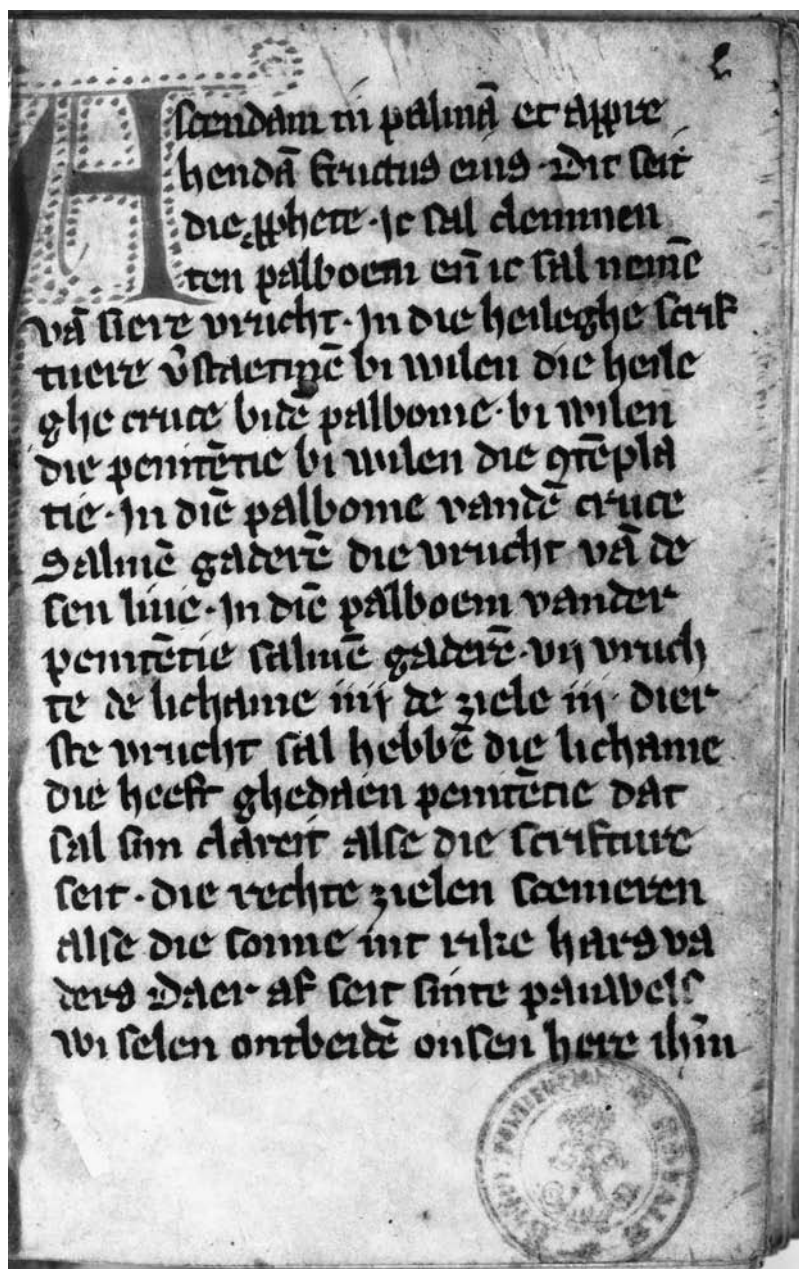 Ascendam in palmā et appre
hendā fructus eius · Dit seit
die ꝓphete · ic sal clemmen
ten palboem eñ ic sal nemē
vā siere vrucht · In die heileghe scrif
tuere v̄staetmē bi wilen die heile
ghe cruce bidē palbome · bi wilen
die penitētie bi wilen die ꝯtēpla
tie · In diē palbome vandē cruce
Salmē gaderē die vrucht vā de
sen liue · In diē palboem vander
penitētie salmē gaderē · vij vruch
te de lichame iiij de ziele iij · dier
ste vrucht sal hebbē die lichame
die heeft ghedaen penitētie dat
sal sijn clareit alse die scrifture
seit · die rechte zielen scemeren
alse die sonne int rike hars va
ders Daer af seit sinte pauwels
wi selen ontbeidē onsen here ihm̄